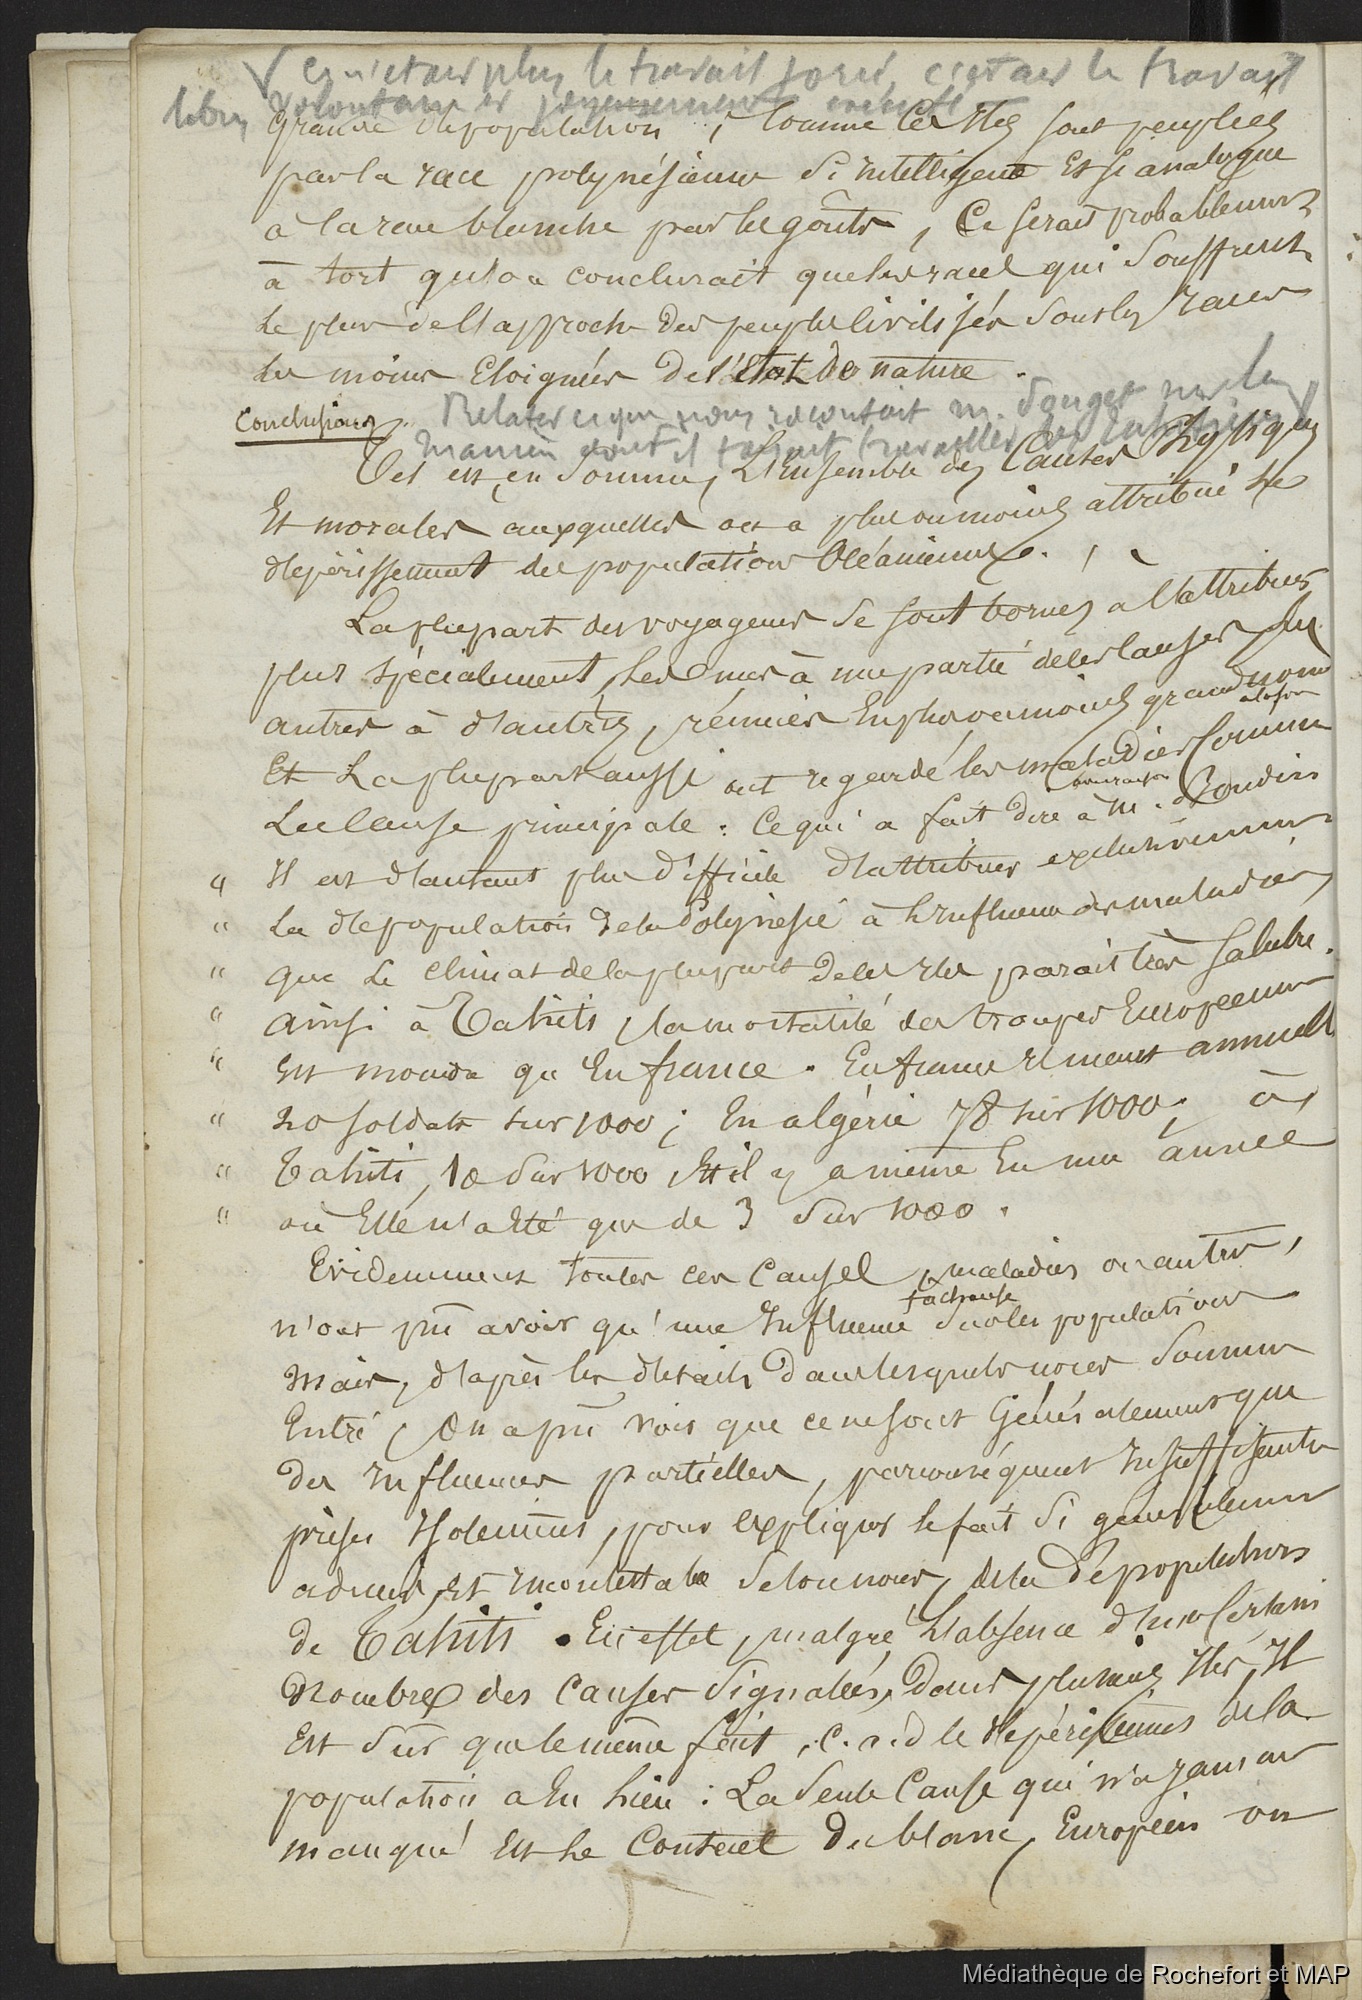 ce n'était plus le travail forcé, c'était le travail
libre, volontaire et joyeusement exécuté
grande dépopulation, comme ces Iles sont peuplées
par la race polynésienne si intelligente et si analogue
à la race blanche par les goûts, ce serait probablement
à tort qu'on conclurait que les races qui souffrent
le plus de l'approche des peuples civilisés sont les races
les moins éloignées de l'état de nature.
Conclusions. Relater ce que nous racontait M.
manière dont il faisait travailler les
Tel est, en somme, l'ensemble des causes physiques
Et morales auxquelles on a plus ou moins attribué le
dépérissement des populations Océaniennes.
La plupart des voyageurs se sont bornés à l'attribuer
plus spécialement, les uns à une partie de ces causes, les
autres à d'autres, réunies en plus ou moins grand nombre
Et la plupart aussi ont regardé les maladies comme
La cause principale : ce qui a fait dire à M. Boudin
avec raison
" Il est d'autant plus difficile d'attribuer exclusivement
" La dépopulation de la Polynésie à l'influence des maladies,
" que le climat de la plupart de ces Iles parait très salubre.
" ainsi à Tahiti, la mortalité des troupes Européennes
" est moindre qu'en france. En france il meurt annuellt
" 20 soldats sur 1000 ; En algérie 78 sur 1000 ; à
" Tahiti, 10 sur 1000 et il y a même eu une année
" où elle n'a été que de 3 sur 1000.
Evidemment toutes ces causes, maladies ou autres,
fâcheuse
n'ont pû avoir qu'une Influence sur les populations
mais, d'après les détails dans lesquels nous sommes
Entré, on a pû voir que ce ne sont généralement que
des Influences partielles, par conséquent insuffisantes
prises Isolement, pour expliquer le fait si généralement
admis, et incontestable selon nous, de la dépopulation
de Tahiti. En effet, malgré l'absence d'un certain
nombre des causes signalées, dans plusieurs Iles, Il
Est sûr que le même fait, c.a.d le dépérissement de la
population a eu lieu : La seule cause qui n'a jamais
manqué est le contact du blanc, Européen ou
Médiathèque de Rochefort et MAP